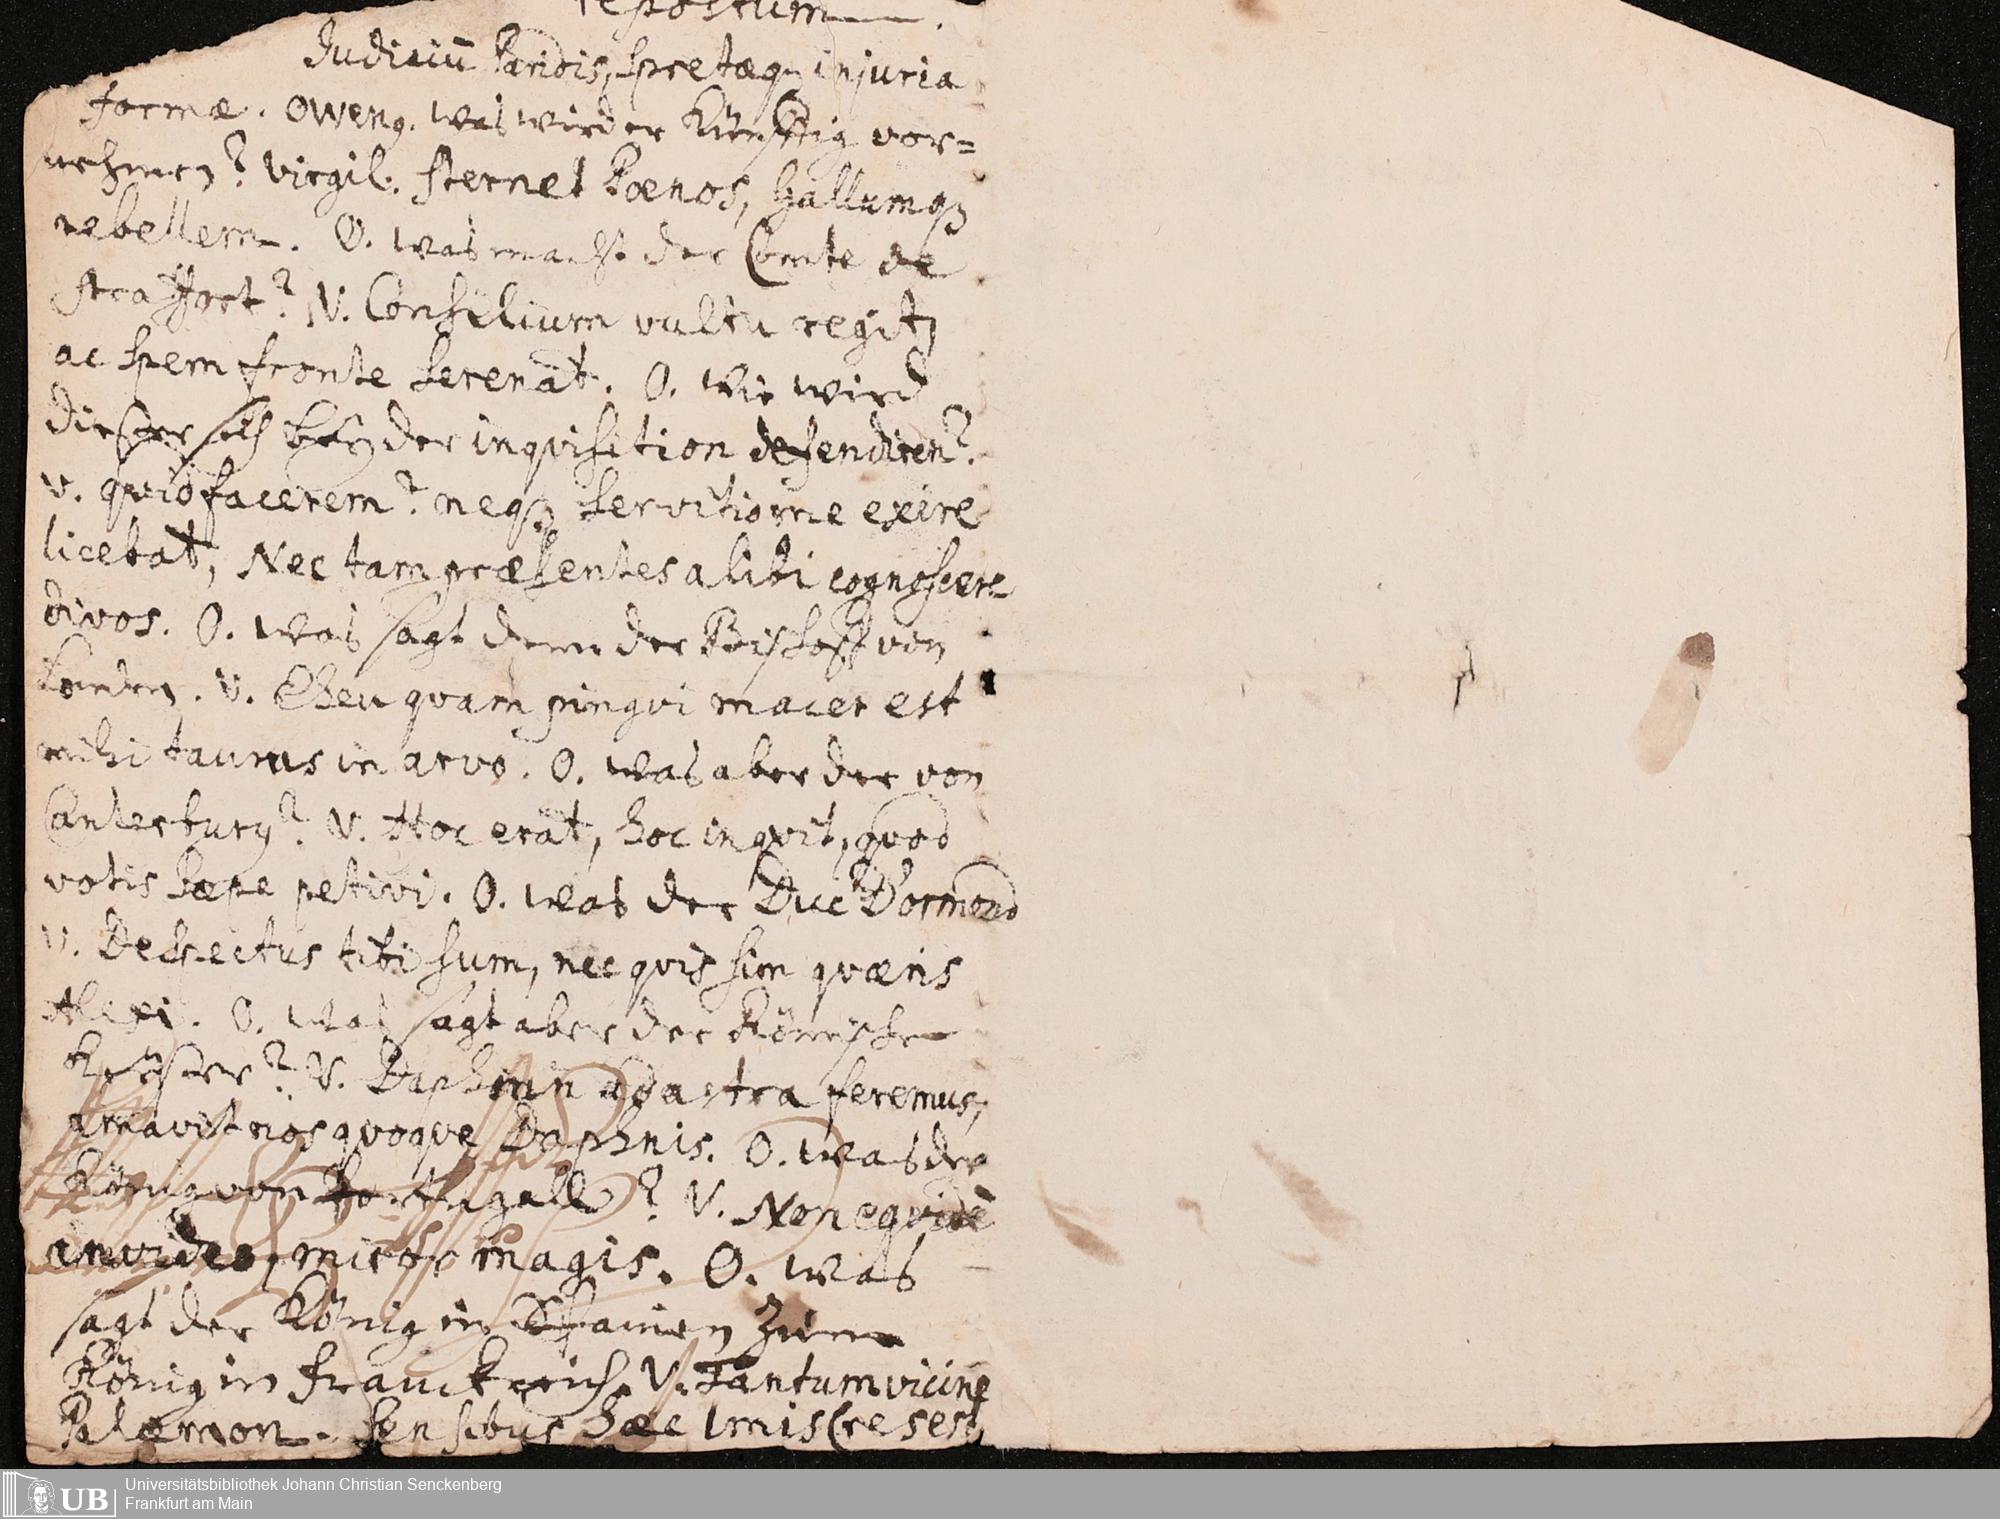 repostum.
Judiciū Paridis, spretæq; injuria
formæ. Oweng. was wird er Künfftig vor=
nehmen? Virgil. sternet Pœnos, Gallumqȝ
rebellem. O. was macht der Comte de
Straffort? V. Consilium vultu regit,
ac spem fronte serenat. O. Wie wird
dieser sich bey der inqvisition defendiren?
V. qvid facerem? neqȝ servitio me exire
licebat, Nec tam præsentes alibi cognoscere
divos. O. was sagt denn der Bischoff von
Londen. V. Eheu qvam pingvi macer est
mihi taurus in arvo. O. was aber der von
Canterbury? V. Hoc erat, hoc inqvit, qvod
votis sæpe petivi. O. was der Duc D'ormond
V. Despectus tibi sum, nec qvis sim qværis
Alexi. O. was sagt aber der Römische
Keyser? V. Daphnin ad astra feremus,
amavit nos qvoqve Daphnis. O. was der
König von Portugall? V. Non eqvidē
invideo, miror magis. O. was
sagt der König in Spanien zum
König in Franckreich. V. Tantum vicine
Palæmon. Sensibus hæc imis (res est
Universitätsbibliothek Johann Christian Senckenberg
Frankfurt am Main
UB